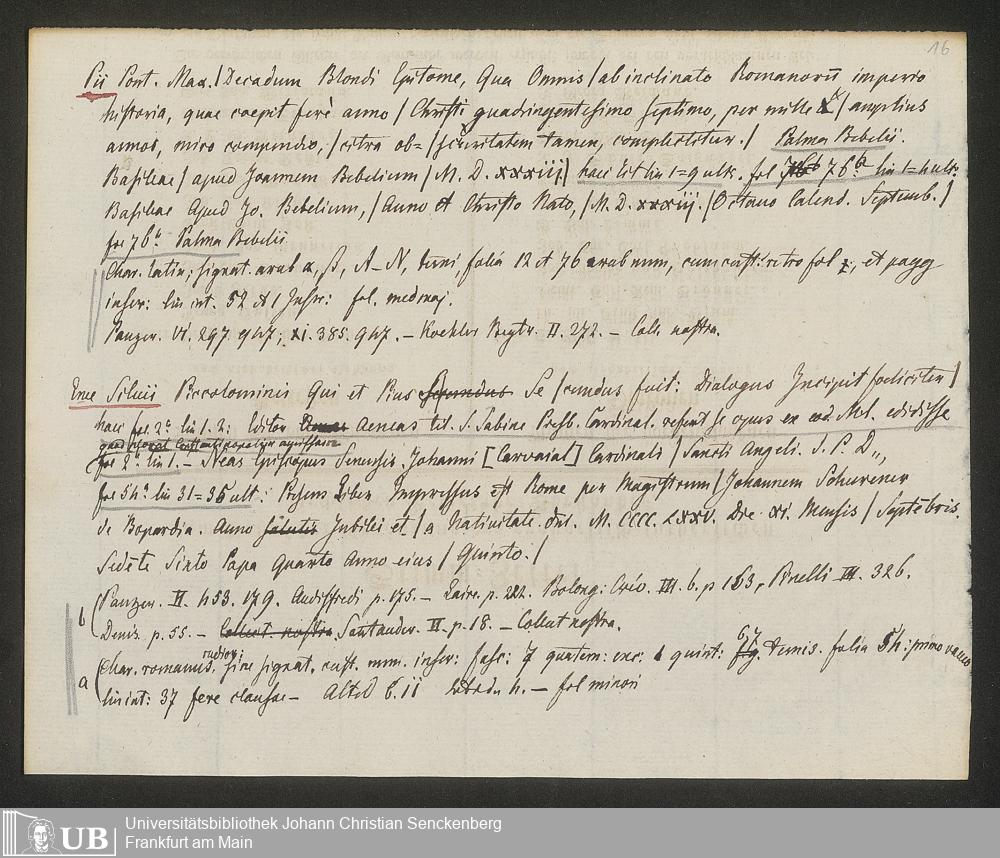 16
Pii Pont. Max. / Decadum Blondi Epitome, Qua Omnis / ab inclinato Romanorū imperio
historia, quae coepit ferè anno / Christi quadringentesimo septimo, per mille & / amplius
annos, miro compendio, / citra ob= / scuritatem tamen, complectitur. / Palma Bebelii.
Basileae / apud Joannem Bebelium / M. D. xxxiij / haec tit lin 1=9 ult. fol 76b lin 1=4 ult:
Basileae Apud Jo. Bebelium, / Anno à Christo Nato, / M. D. xxxiij. / Octavo Calend. Septemb. /
fol 76b Palma Bebelii
Char. latin; signat. arab α, β, A–N, terni, folia 12 et 76 arab num, cum cust: retro fol et pagg
inscr: lin int. 52 et 1 Inscr: fol. med maj.
Panzer. VI. 297. 947; XI. 385. 947. – Koehler Beytr. II. 272. – Coll. nostra.
Enee Siluii Piccolominis Qui et Pius Secundus Se / cundus fuit: Dialogus Incipit foeliciter /
haec fol. 2a lin 1. 2: Editor Aeneas tit. S. Sabine Presb. Cardinal. refert se opus ex cod. Mt. edidisse
fol 2a lin 1. – Neas Episcopus Senensis Johanni [Carvaial] Cardinali / Sancti Angeli. S. P. D.,
fol 54a lin 31=35 ult: Presens Liber Impressus est Rome per Magistrum / Johannem Schurener
de Bopardia. Anno salutis Jubilei et / a Nativitate dnī. M. CCCC. LXXV. Die xi. Mensis / Septēbris.
Sedēte Sixto Papa Quarto Anno eius / Quinto. /
b Panzer. II. 453. 179. Audiffredi p. 175. – Laire. p. 222. Bolong. Crev. III. 6. p 153, Pinelli III. 326.
Denis. p. 55. – Collect nostra Santander. II. p. 18. – Collect nostra.
a Char. romanus rudior; sine signat. cust. num. inscr: fasc: 7 quatern: exc. quint: 6, 7 ternis. folia 54: primo vacuo
lin int: 37 fere clausae – fol minori
Universitätsbibliothek Johann Christian Senckenberg
UB Frankfurt am Main